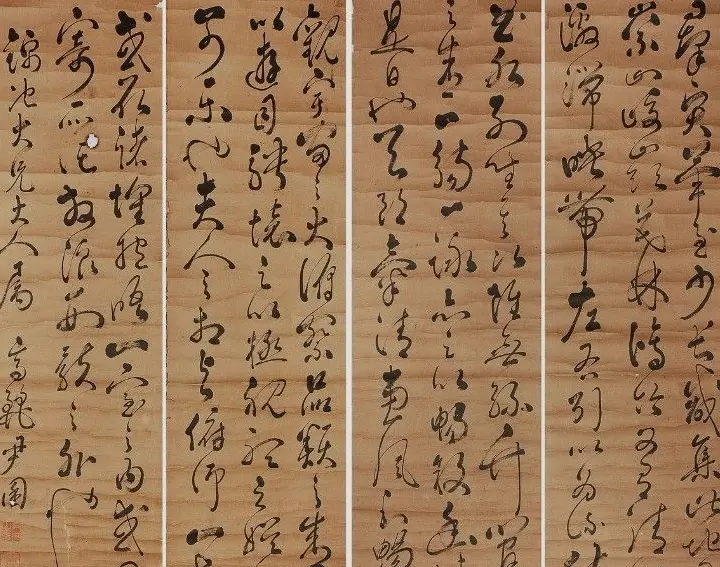 羣賢畢至少長咸集此地
崇山峻嶺茂林脩竹又有清
激湍映帶左右引以為流
曲水列坐其次雖無絲竹
之盛一觴一詠亦足以暢敘幽
是日也天朗氣清惠風和暢
觀宇宙之大俯察品類之盛
以遊目騁懷足以極視聽之娛
可樂也夫人之相與俯仰一
或取諸懷抱晤言一室之內或
寄所託放浪形骸之外
池大兄大人屬 尹圖